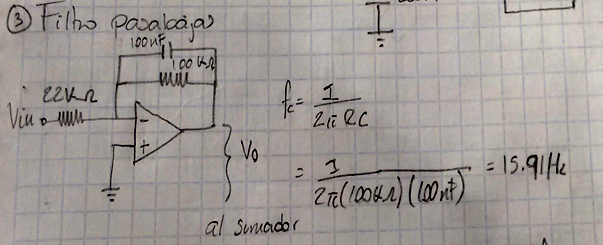 ③ Filtro pasabajas
100nF
100KΩ
22KΩ
Vin
-
+
Vo
al sumador
fc = 1 / 2πRC
= 1 / 2π(100KΩ)(100nF) = 15.91Hz